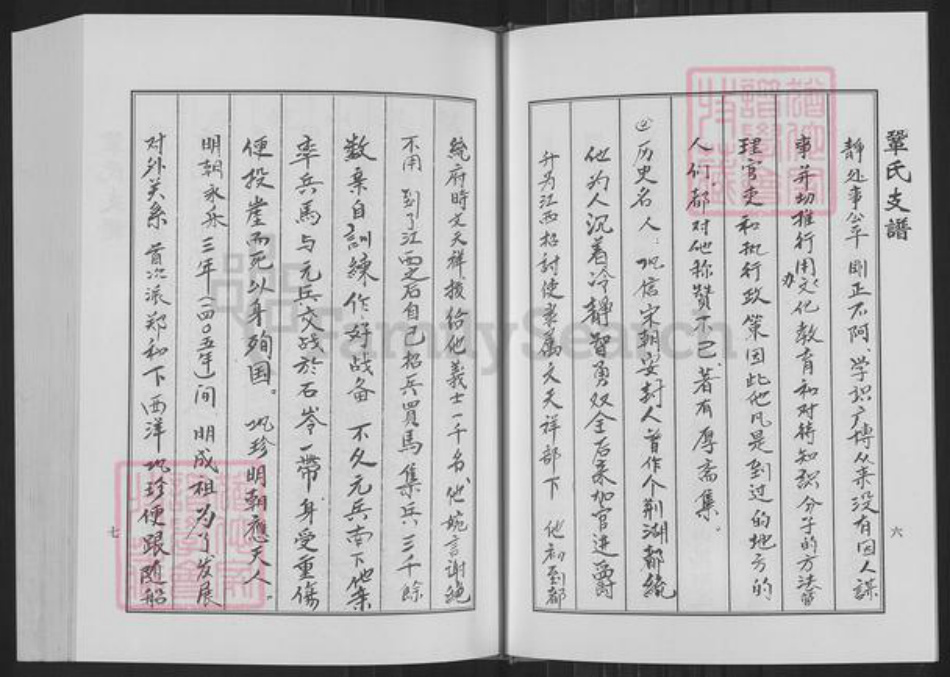 鞏氏支譜
靜处事公平 剛正不阿 学识广博 从来没有因人謀
事 并切推行用文化教育和对待知识分子的方法
办
理官吏和执行政策因此他凡是到过的地方的
人们都对他称贊不已 著有厚斋集。
历史名人：巩信宋朝安封人首作个荆湖都统
他为人沉着冷靜智勇双全后来加官进爵
升为江西招討使隶属文天祥部下 他初到都
六
統府時文天祥拔给他義士一千名 他婉言谢绝
不用 到了江西之后自己招兵買馬集兵三千餘
数亲自訓練作好战备 不久元兵南下他
率兵馬与元兵交战於石岺一帶 身受重傷
便投崖而死以身殉国。 巩珍明朝應天人。
明朝永乐三年(一四〇五年)间 明成祖为了发展
对外关系 首次派郑和下西洋 巩珍便跟随船
七
FamilySearch